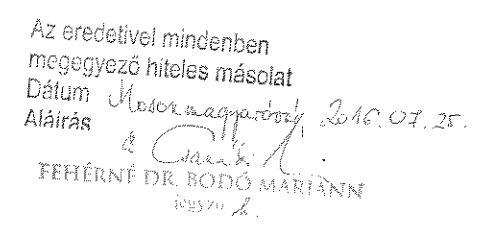 Az eredetivel mindenben
megegyező hiteles másolat
Dátum Mosonmagyaróvár, 2016.07.25.
Aláírás
FEHÉRNÉ DR. BODÓ MARIANN
jegyző